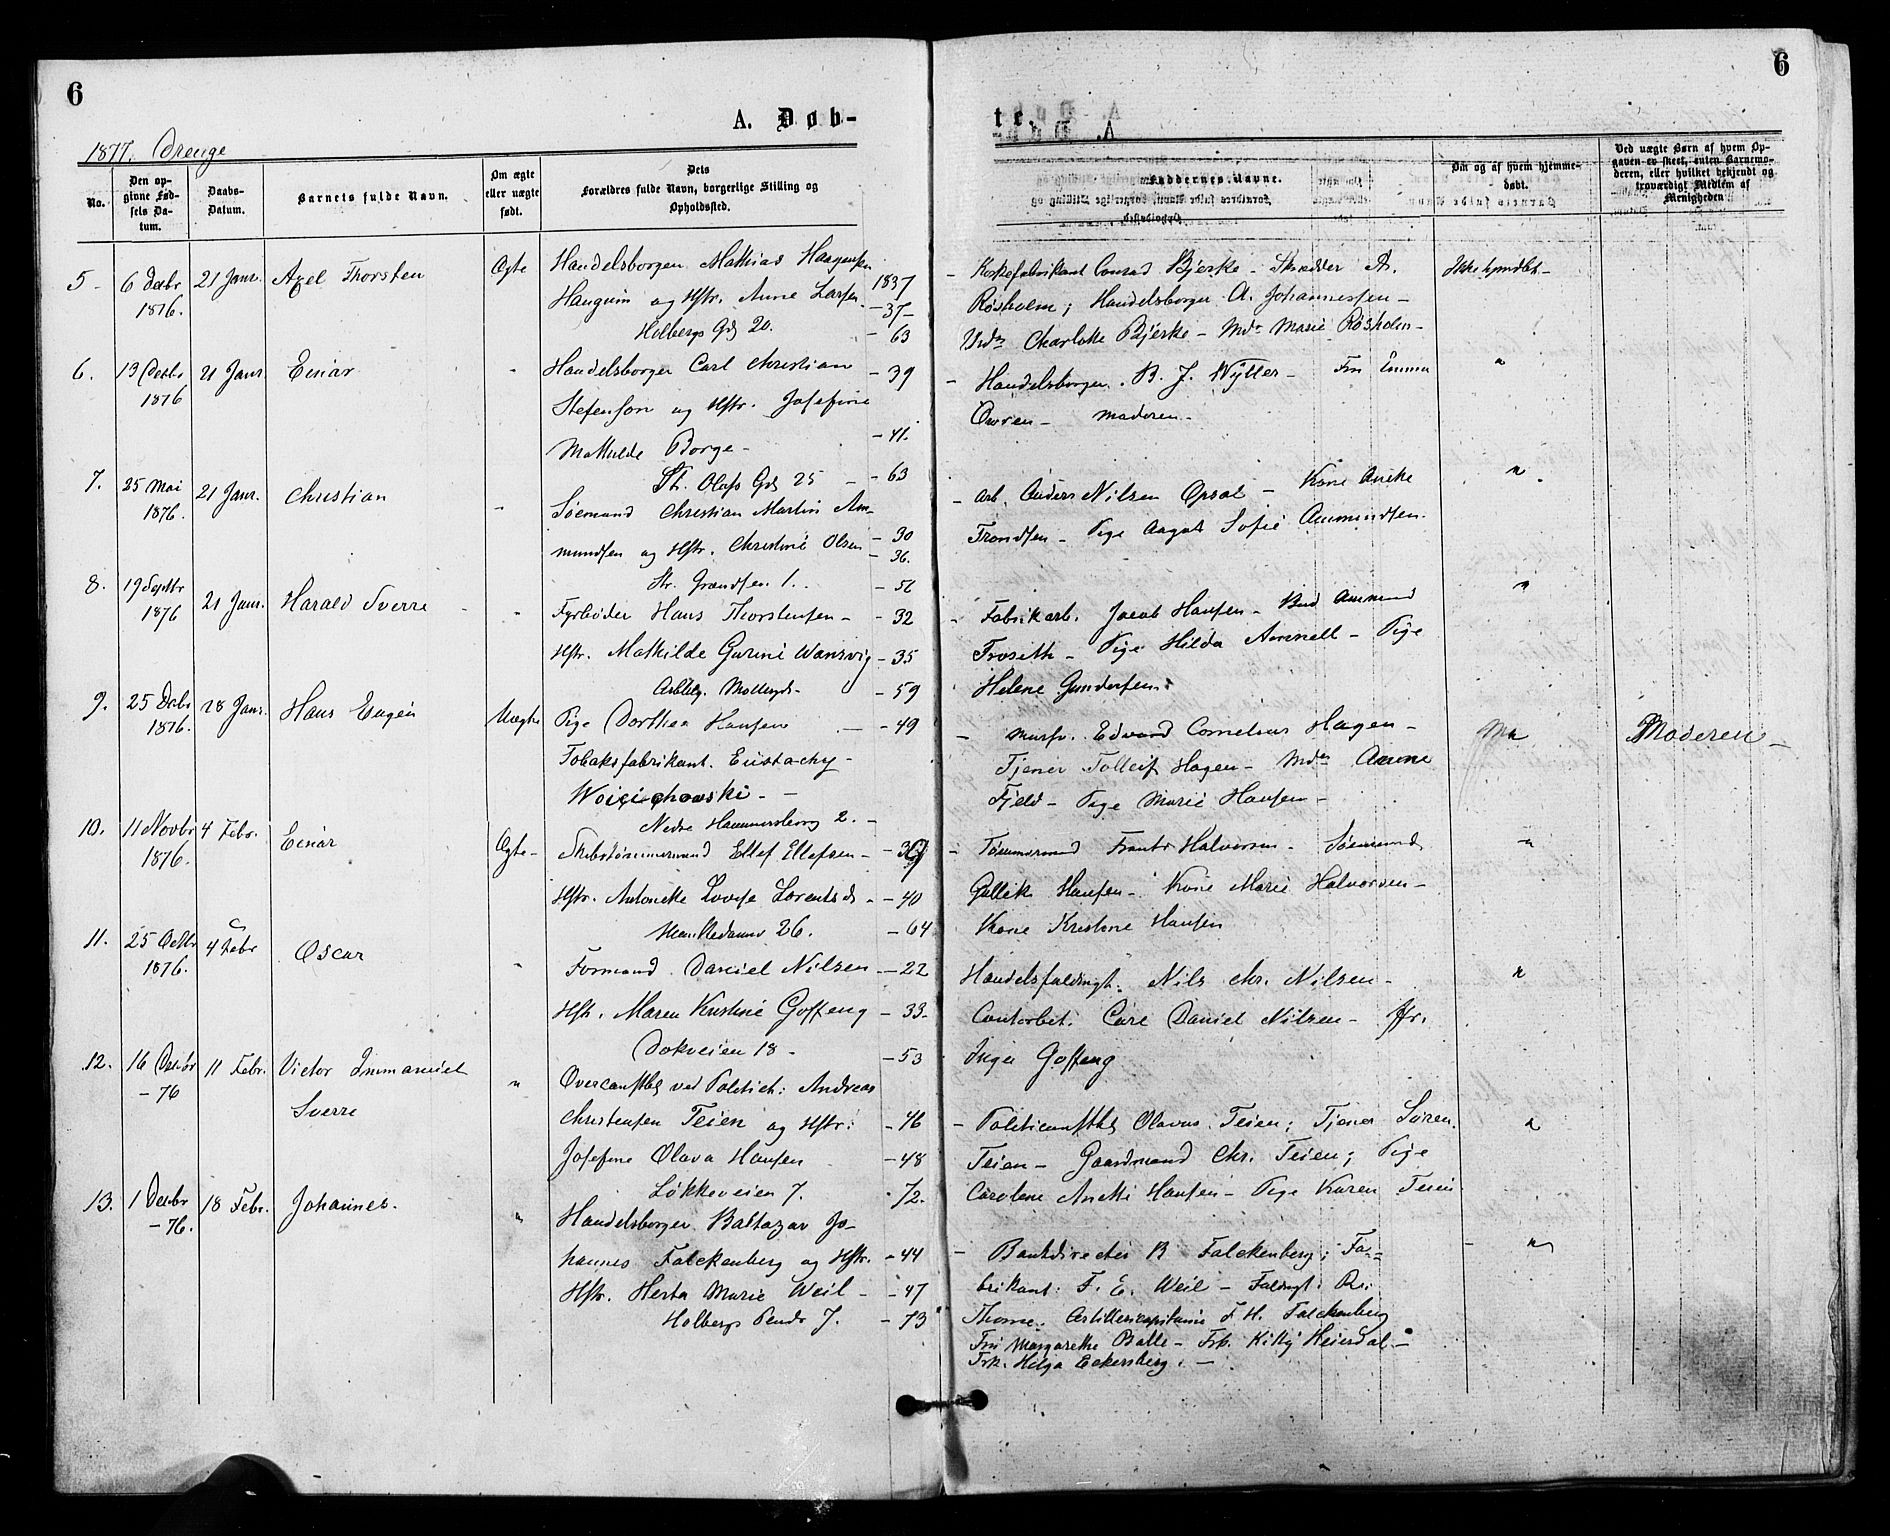 6
6
A. Døb-
te.
1877. Drenge
No.
Den op-
givne Fød-
sels Da-
tum.
Daabs-
Datum.
Barnets fulde Navn.
Om ægte
eller uægte
født.
Dets
Forældres fulde Navn, borgerlige Stilling og
Opholdssted.
Faddernes Navne.
Om og af hvem hjemme-
døbt.
Ved uægte Børn af hvem Op-
gaven er skeet, enten Barnemo-
deren, eller hvilket bekjendt og
troværdigt Medlem af
Menigheden
5 - 6 Decbr 1876. 21 Janr. Axel Thorsten Ægte
Handelsborger Mathias Haagensen 1837
Haugum og Hstr. Anne Larsen - 37 -
Holbergs Gd 20. - 63
- Korkefabrikant Conrad Bjerke - Skrædder A. Ikke hjmdbt -
Røsholm; Handelsborger A. Johannessen -
Charlotte Bjerke - Md. Marie Røsholm -
6. 13 Decbr 1876 21 Janr Einar "
Handelsborger Carl Christian - 39
Stefenson og Hstr. Josefine
Mathilde Borge - - 41.
St. Olafs Gd 25 - - 63
- Handelsborger. B. J. Wytter - Fru Emma "
Owren - Moderen -
7. 25 Mai 1876. 21 Janr. Christian "
Sømand Christian Martin Am- - 30
mundsen og Hstr. Christine Olsen - 36.
Str. Grændsen 1. - 56
- Arb. Anders Nilsen Opsal - Kone Anike "
Trondsen - Pige Aagot Sofie Ammundsen.
8. 19 Septbr 1876 21 Janr. Harald Sverre "
Fyrbøder Hans Thorstensen - - 32
Hstr. Mathilde Gurine Wansvig - 35
Arbblg. Møllergd - - 59
- Fabrikarb. Jacob Hansen - Bud Ammund "
Froseth - Pige Hilda Ammell - Pige
Helene Gundersen.
9. 25 Decbr 1876. 28 Janr. Hans Eugen Uægte
Pige Dorthea Hansen - 49
Tobaksfabrikant. Eustachy -
Woicichowski - -
Nedre Hammersborg 2. -
- Mursv. Edvard Cornelius Hagen - " Moderen -
Tjener Tolleif Hagen - Md. Anne
Fjeld - Pige Marie Hansen -
10. 11 Novbr 1876. 4 Febr. Einar Ægte -
Skibstømmermand Ellef Ellefsen -
Hstr. Antonette Lovise Lorentsd. - - 40
Munkedamsv 26. - 64
- Tømmermand Frants Halvorsen - Sømand "
Gullik Hansen - Kone Marie Halvorsen -
Kone Kristine Hansen
11. 25 Octbr 1876. 4 Febr Oscar "
Formand Daniel Nilsen - 22
Hstr. Maren Kristine Goffeng - 33 -
Dokveien 18 - - 53
Handelsfuldmgt. Nils Chr. Nilsen - "
Contorbet. Carl Daniel Nilsen - Jfr.
Inga Goffeng
12. 16 Octbr - 76 11 Febr. Victor Immanuel Sverre "
Overconstbl ved Politiet: Andreas
Christensen Teien og Hstr: - 46
Josefine Olava Hansen - 48
Løkkeveien 7. - 72.
- Politiconstbl Olavus Teien; Tjener Søren "
Teien - Gaardmand Chr. Teien; Pige
Caroline Anetti Hansen - Pige Karen Teien
13. 1 Decbr - 76. 18 Febr. Johannes. "
Handelsborger Baltazar Jo-
hannes Falckenberg og Hstr. - 44
Hstr. Herta Marie Weil - - 47
Holbergs 7. - 73
- Bankdirectør B Falckenberg; Fa- - "
brikant: F. E. Weil - Fuldmgt. R.
Thome. Artillericapitaine F. H. Falckenberg
Fru Margarethe Balle - Frk. Kitty Heierdal. -
Frk. Helga Eckersberg. -